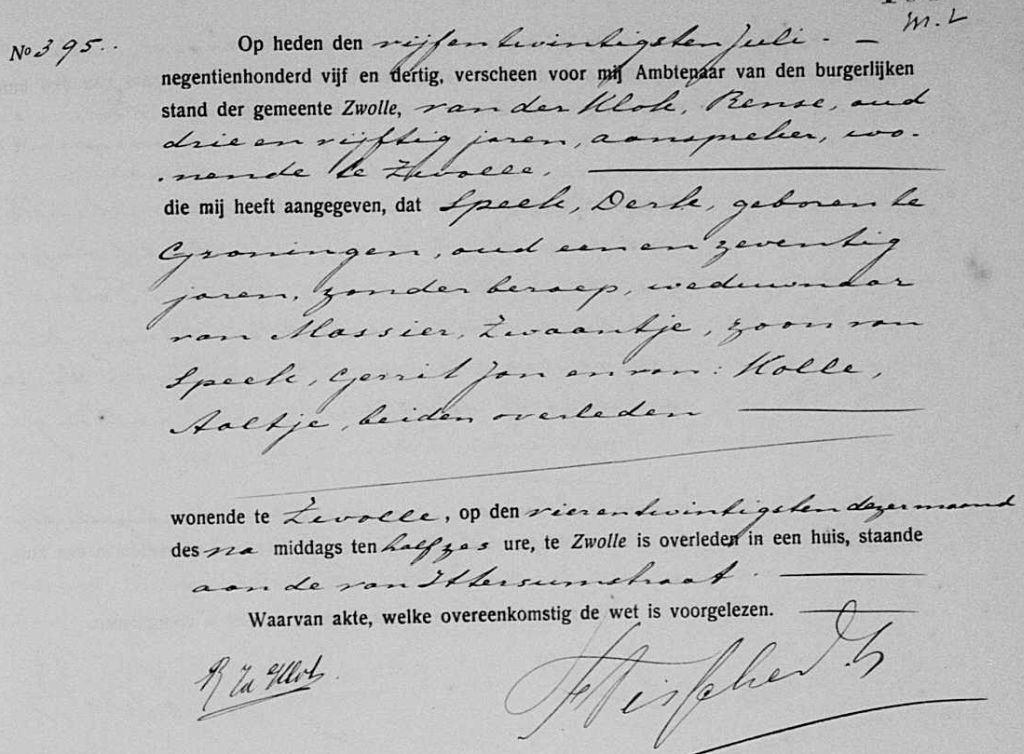 M. L
No 395..
Op heden den vijfentwintigsten Juli. -
negentienhonderd vijf en dertig, verscheen voor mij Ambtenaar van den burgerlijken
stand der gemeente Zwolle, van der Klok, Rense, oud
drie en vijftig jaren, aanspreker, wo-
nende te Zwolle,
die mij heeft aangegeven, dat Speek, Derk, geboren te
Groningen, oud een en zeventig
jaren, zonder beroep, weduwnaar
van Massier, Zwaantje, zoon van
Speek, Gerrit Jan en van: Kolle,
Aaltje, beiden overleden
wonende te Zwolle, op den vierentwintigsten dezer maand
des na middags ten half zes ure, te Zwolle is overleden in een huis, staande
aan de van Ittersumstraat.
Waarvan akte, welke overeenkomstig de wet is voorgelezen.
R vd Klok